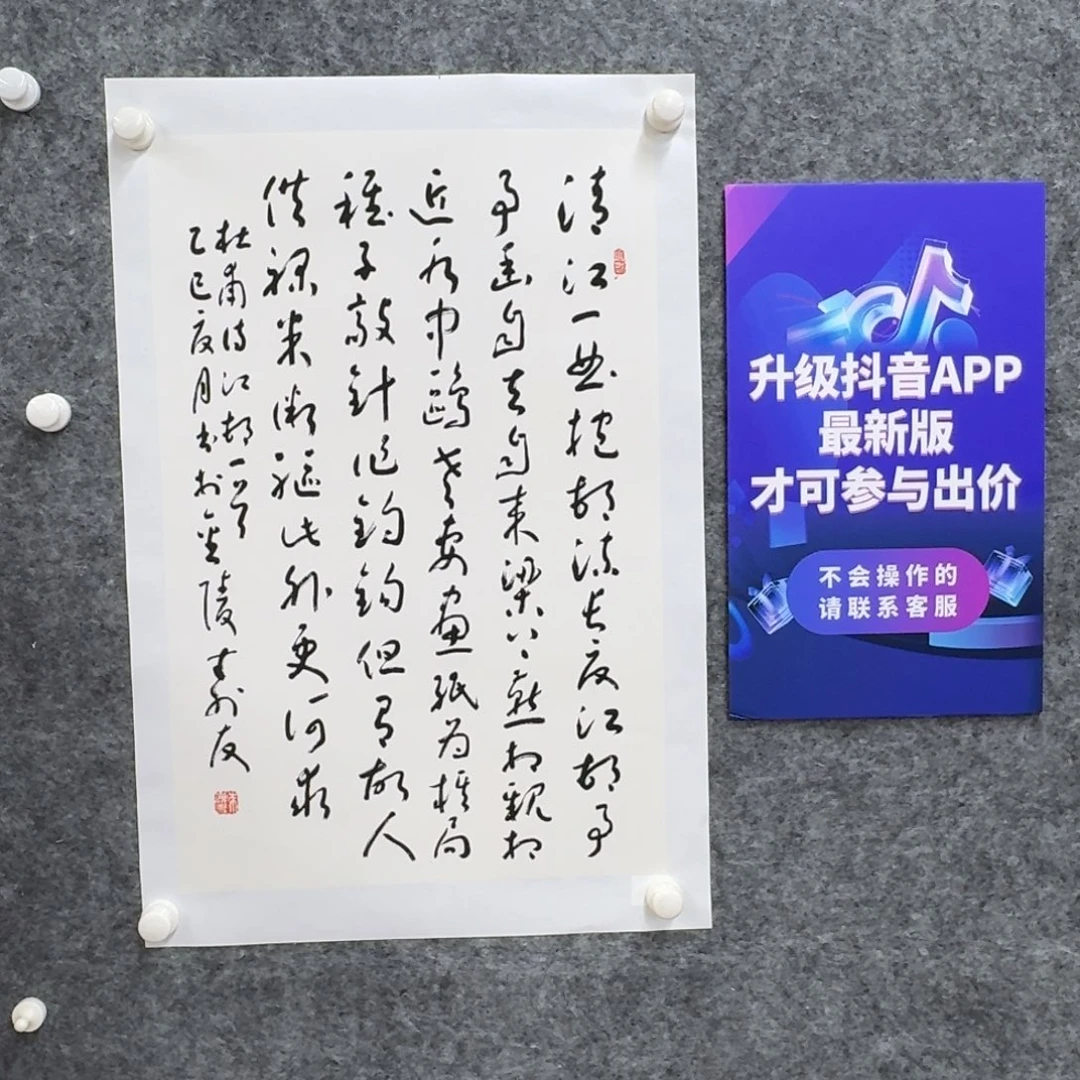 清江一曲抱邨流長夏江邨事
事幽自去自来梁上燕相親相
近水中鷗老妻畫紙為棋局
稚子敲針作釣鈎但有故人
供禄米微軀此外更何求
杜甫詩江邨一首
乙巳夏月书於金陵
升级抖音APP
最新版
才可参与出价
不会操作的
请联系客服